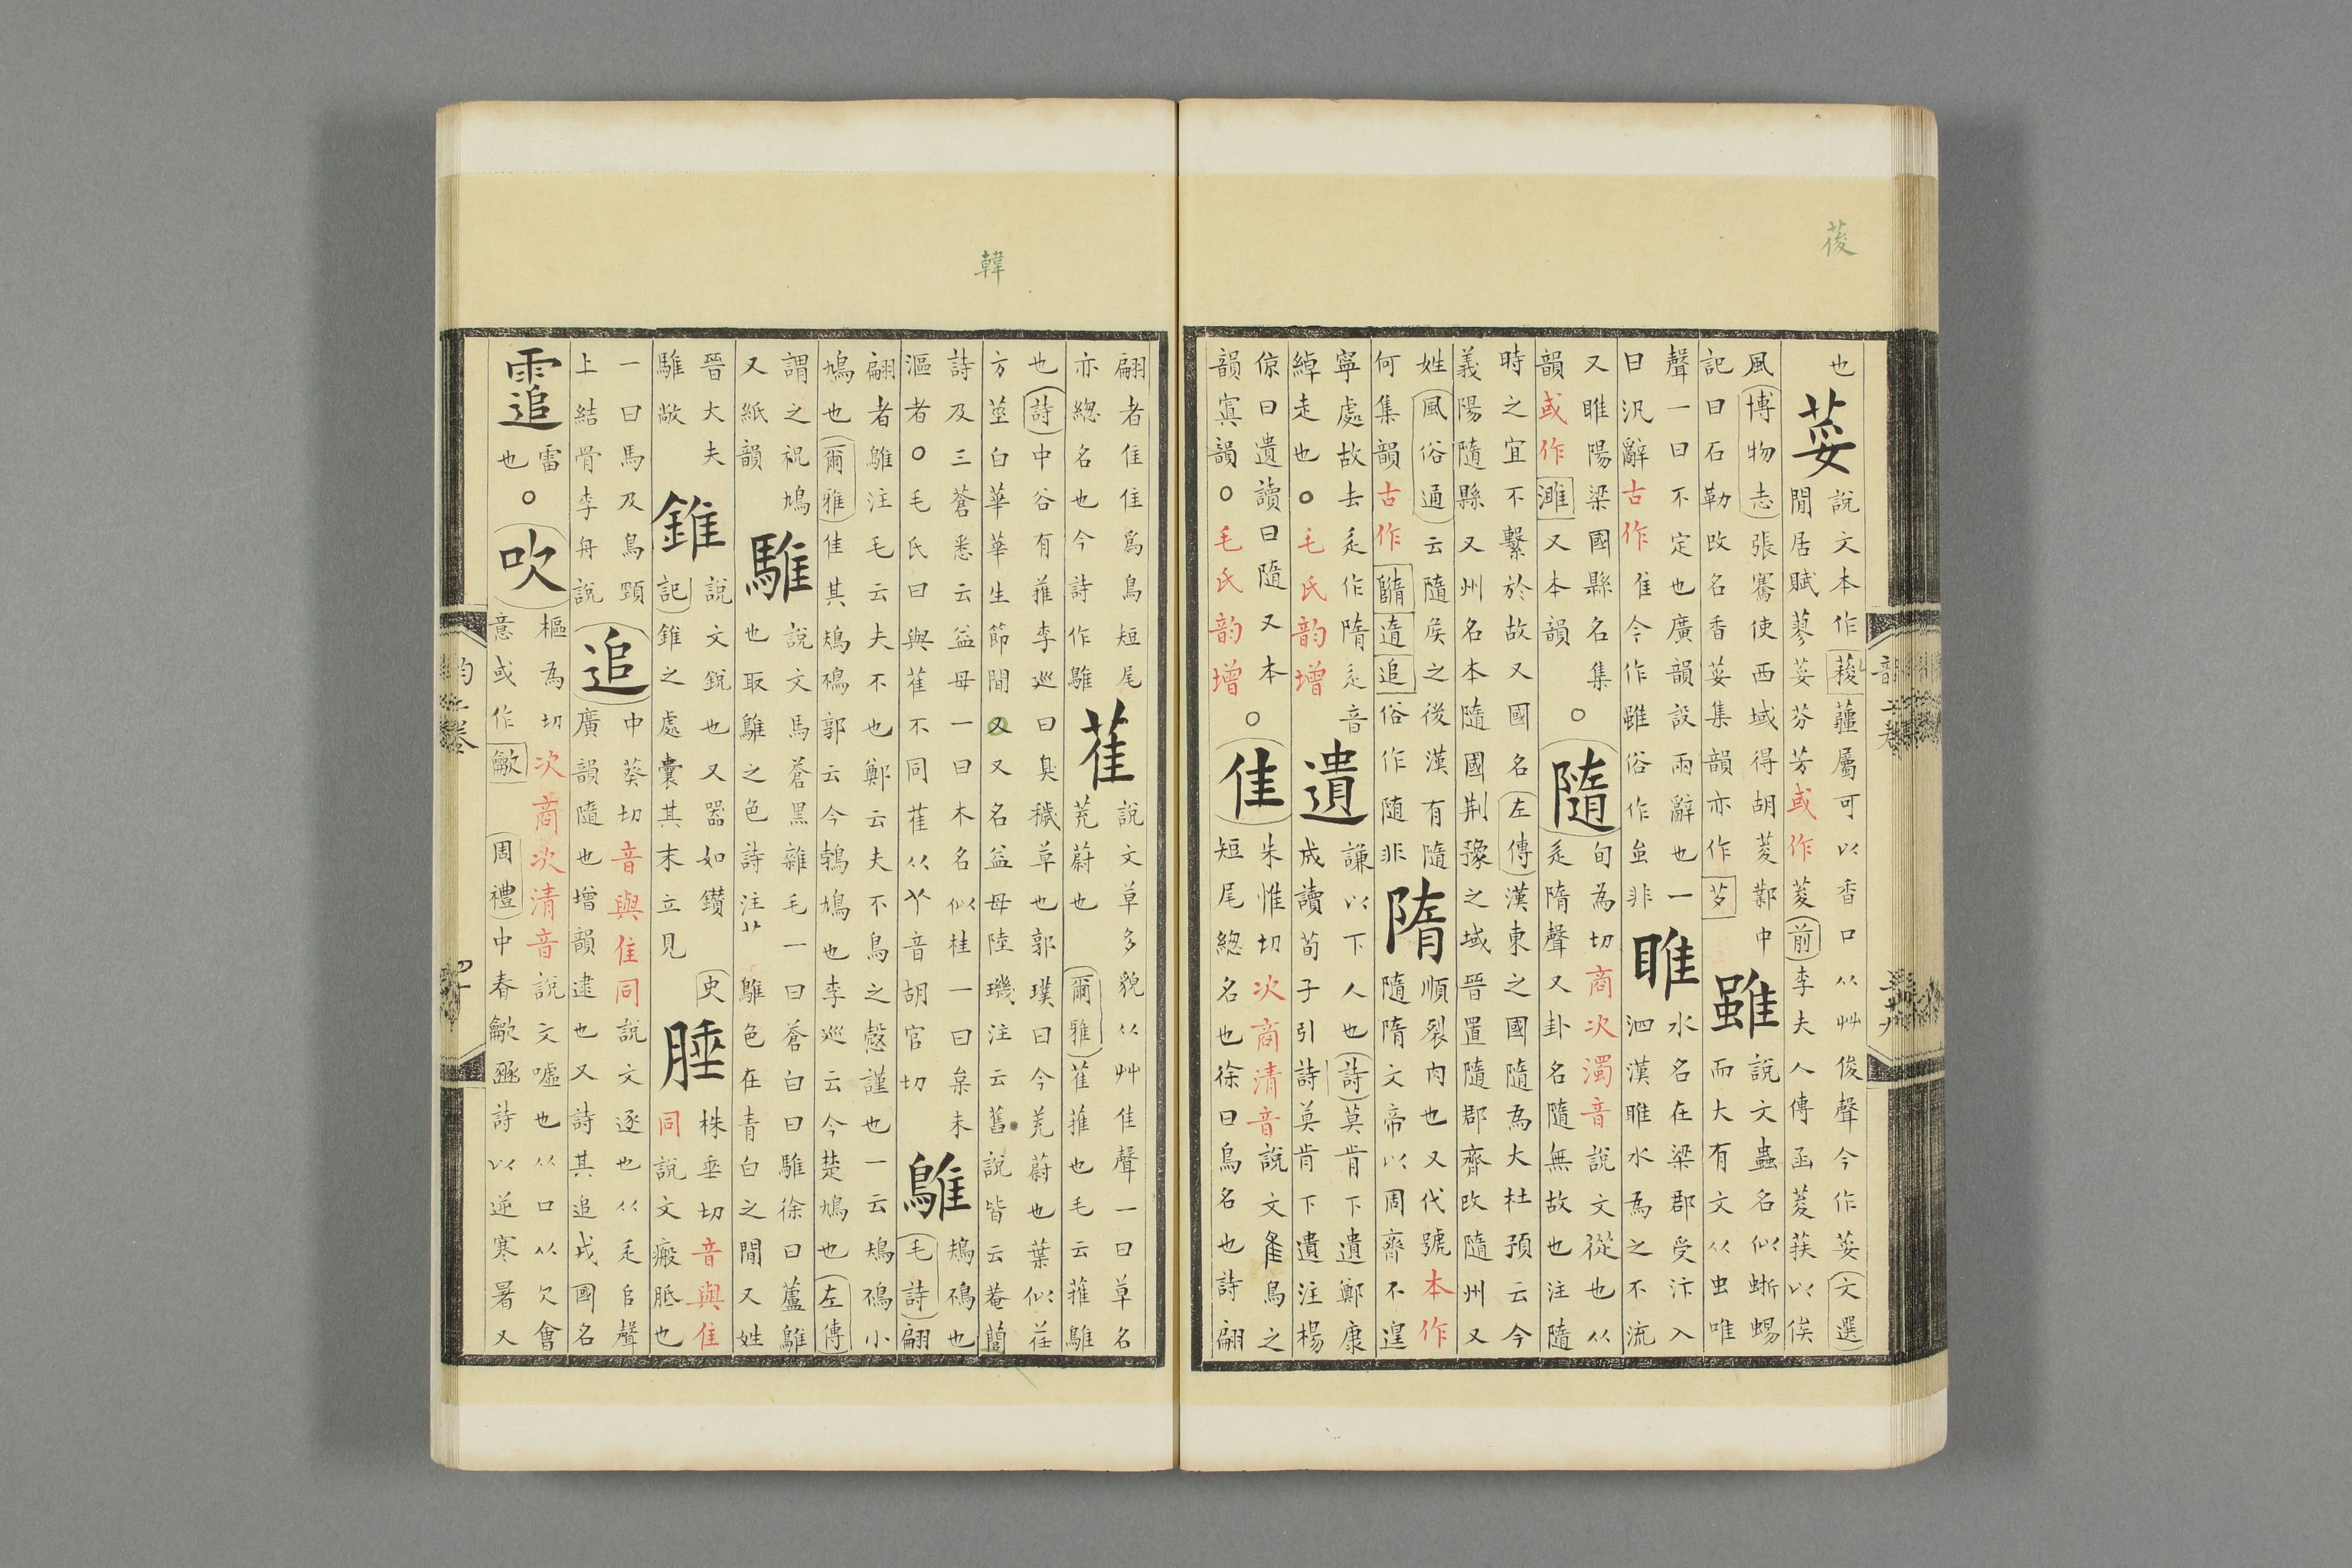 荽
也
荽
說文本作葰薑屬可以香口从艸俊聲今作荽文選
閒居賦蓼荽芬芳或作䔖前李夫人傳函荾荴以俟
風博物志張騫使西域得胡荾鄴中
記曰石勒改名香荽集韻亦作䒑
雖
說文蟲名似蜥蜴
而大有文从虫唯
聲一曰不定也廣韻設兩辭也一
曰汎辭古作隹今作雖俗作虽非
睢
水名在梁郡受汴入
泗漢睢水為之不流
又睢陽梁國縣名集
韻或作濉又本韻
○
隨
旬為切商次濁音說文從也从
辵隋聲又卦名隨無故也注隨
時之宜不繫於故又國名左傳漢東之國隨為大杜預云今
義陽隨縣又州名本隨國荆豫之域晉置隨郡齊改隨州又
姓風俗通云隨侯之後漢有隨
何集韻古作追俗作随非
隋
順裂肉也又代號本作
隨隋文帝以周齊不遑
寧處故去辵作隋辵音
綽走也○毛氏韵增
遺
謙以下人也詩莫肯下遺鄭康
成讀荀子引詩莫肯下遺注楊
倞曰遺讀曰隨又本
韻寘韻○毛氏韵增
○
隹
朱惟切次商清音說文隹鳥之
短尾總名也徐曰鳥名也詩翩
韓
翩者隹隹為鳥短尾
亦總名也今詩作鵻
萑
說文草多貌从艸隹聲一曰草名
茺蔚也爾雅萑蓷也毛云蓷鵻
也詩中谷有蓷李巡曰臭穢草也郭璞曰今茺蔚也葉似荏
方莖白華華生節間又又名益母陸璣注云舊說皆云菴䕡
詩及三蒼悉云益母一曰木名似桂一曰枲未
漚者○毛氏曰與雈不同雈从𦫳音胡官切
鵻
鳺鳻也
毛詩翩
翩者鵻注毛云夫不也鄭云夫不鳥之慤謹也一云鳺鳻小
鳩也爾雅隹其鳺鳻郭云今鵓鳩也李巡云今楚鳩也左傳
謂之祝鳩
又紙韻
騅
說文馬蒼黑雜毛一曰蒼白曰騅徐曰蘆鵻
也取鵻之色詩注鵻色在青白之間又姓
晉大夫
騅歂
錐
說文銳也又器如鑽史
記錐之處囊其末立見
腄
株垂切音與隹
同說文瘢胝也
一曰馬及鳥頸
上結骨李舟說
追
中葵切音與隹同說文逐也从辵𠂤聲
廣韻隨也增韻逮也又詩其追戎國名
䨨
雷
也○
吹
樞為切次商次清音說文噓也从口从欠會
意或作龡周禮中春龡豳詩以逆寒暑又